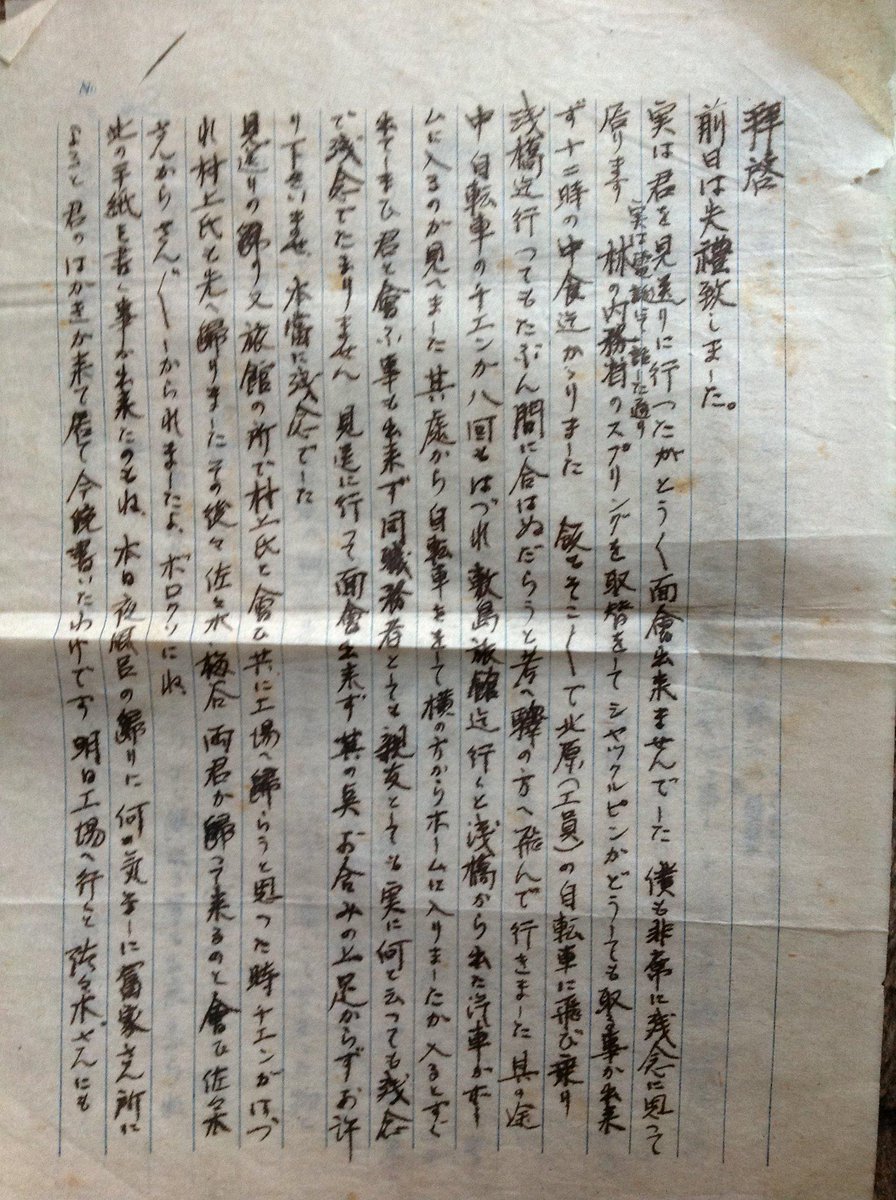 拝啓
前日は失禮致しました。
実は君を見送りに行つたがとう〱面會出来ませんでした 僕も非常に残念に思つて
居ります 林の内務省のスプリングを取替をしてシヤツクルピンがどうしても取る事が出来
実は電話にて話した通り
ず十二時の中食迄かゝりました 飯もそこ〱して北原(工員)の自転車に飛び乗り
浅橋迄行つてもたぶん間に合はぬだらうと考へ驛の方へ飛んで行きました 其の途
中 自転車のチエンが八回もはづれ敷島旅館迄行くと浅橋から出た汽車がホー
ムに入るのが見へました 其處から自転車をすて横の方からホームに入りましたが入るとすぐ
出てしまひ君と會ふ事も出来ず同職務者としても親友としても実に何と云つても残念
で残念でたまりません 見送に行つて面會出来ず其の点お含みの上足からずお許
り下さいませ、本當に残念でした
見送りの歸り又旅館の所で村上氏と會ひ共に工場へ歸らうと思つた時チエンがはづ
れ村上氏と先へ歸りました その後々佐々木 梅谷 両君が歸つて来るのと會ひ佐々木
さんからさん〲しかられましたよ、ボロクソにね、
此の手紙を書く事が出来たのもね、本日夜風呂の歸りに何の気なしに冨家さん所に
よると君のはがきが来て居て今晩書いたわけです 明日工場へ行くと佐々木さんにも